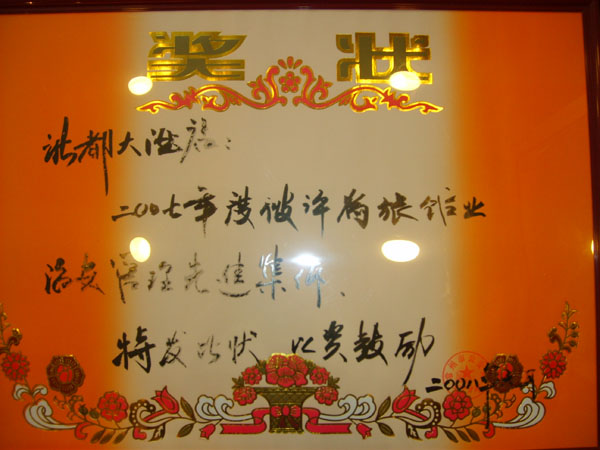 奖状
都大酒店：
二00七年度被评为旅馆业
治安管理先进集体、
特发此状 以资鼓励
二00八年 月